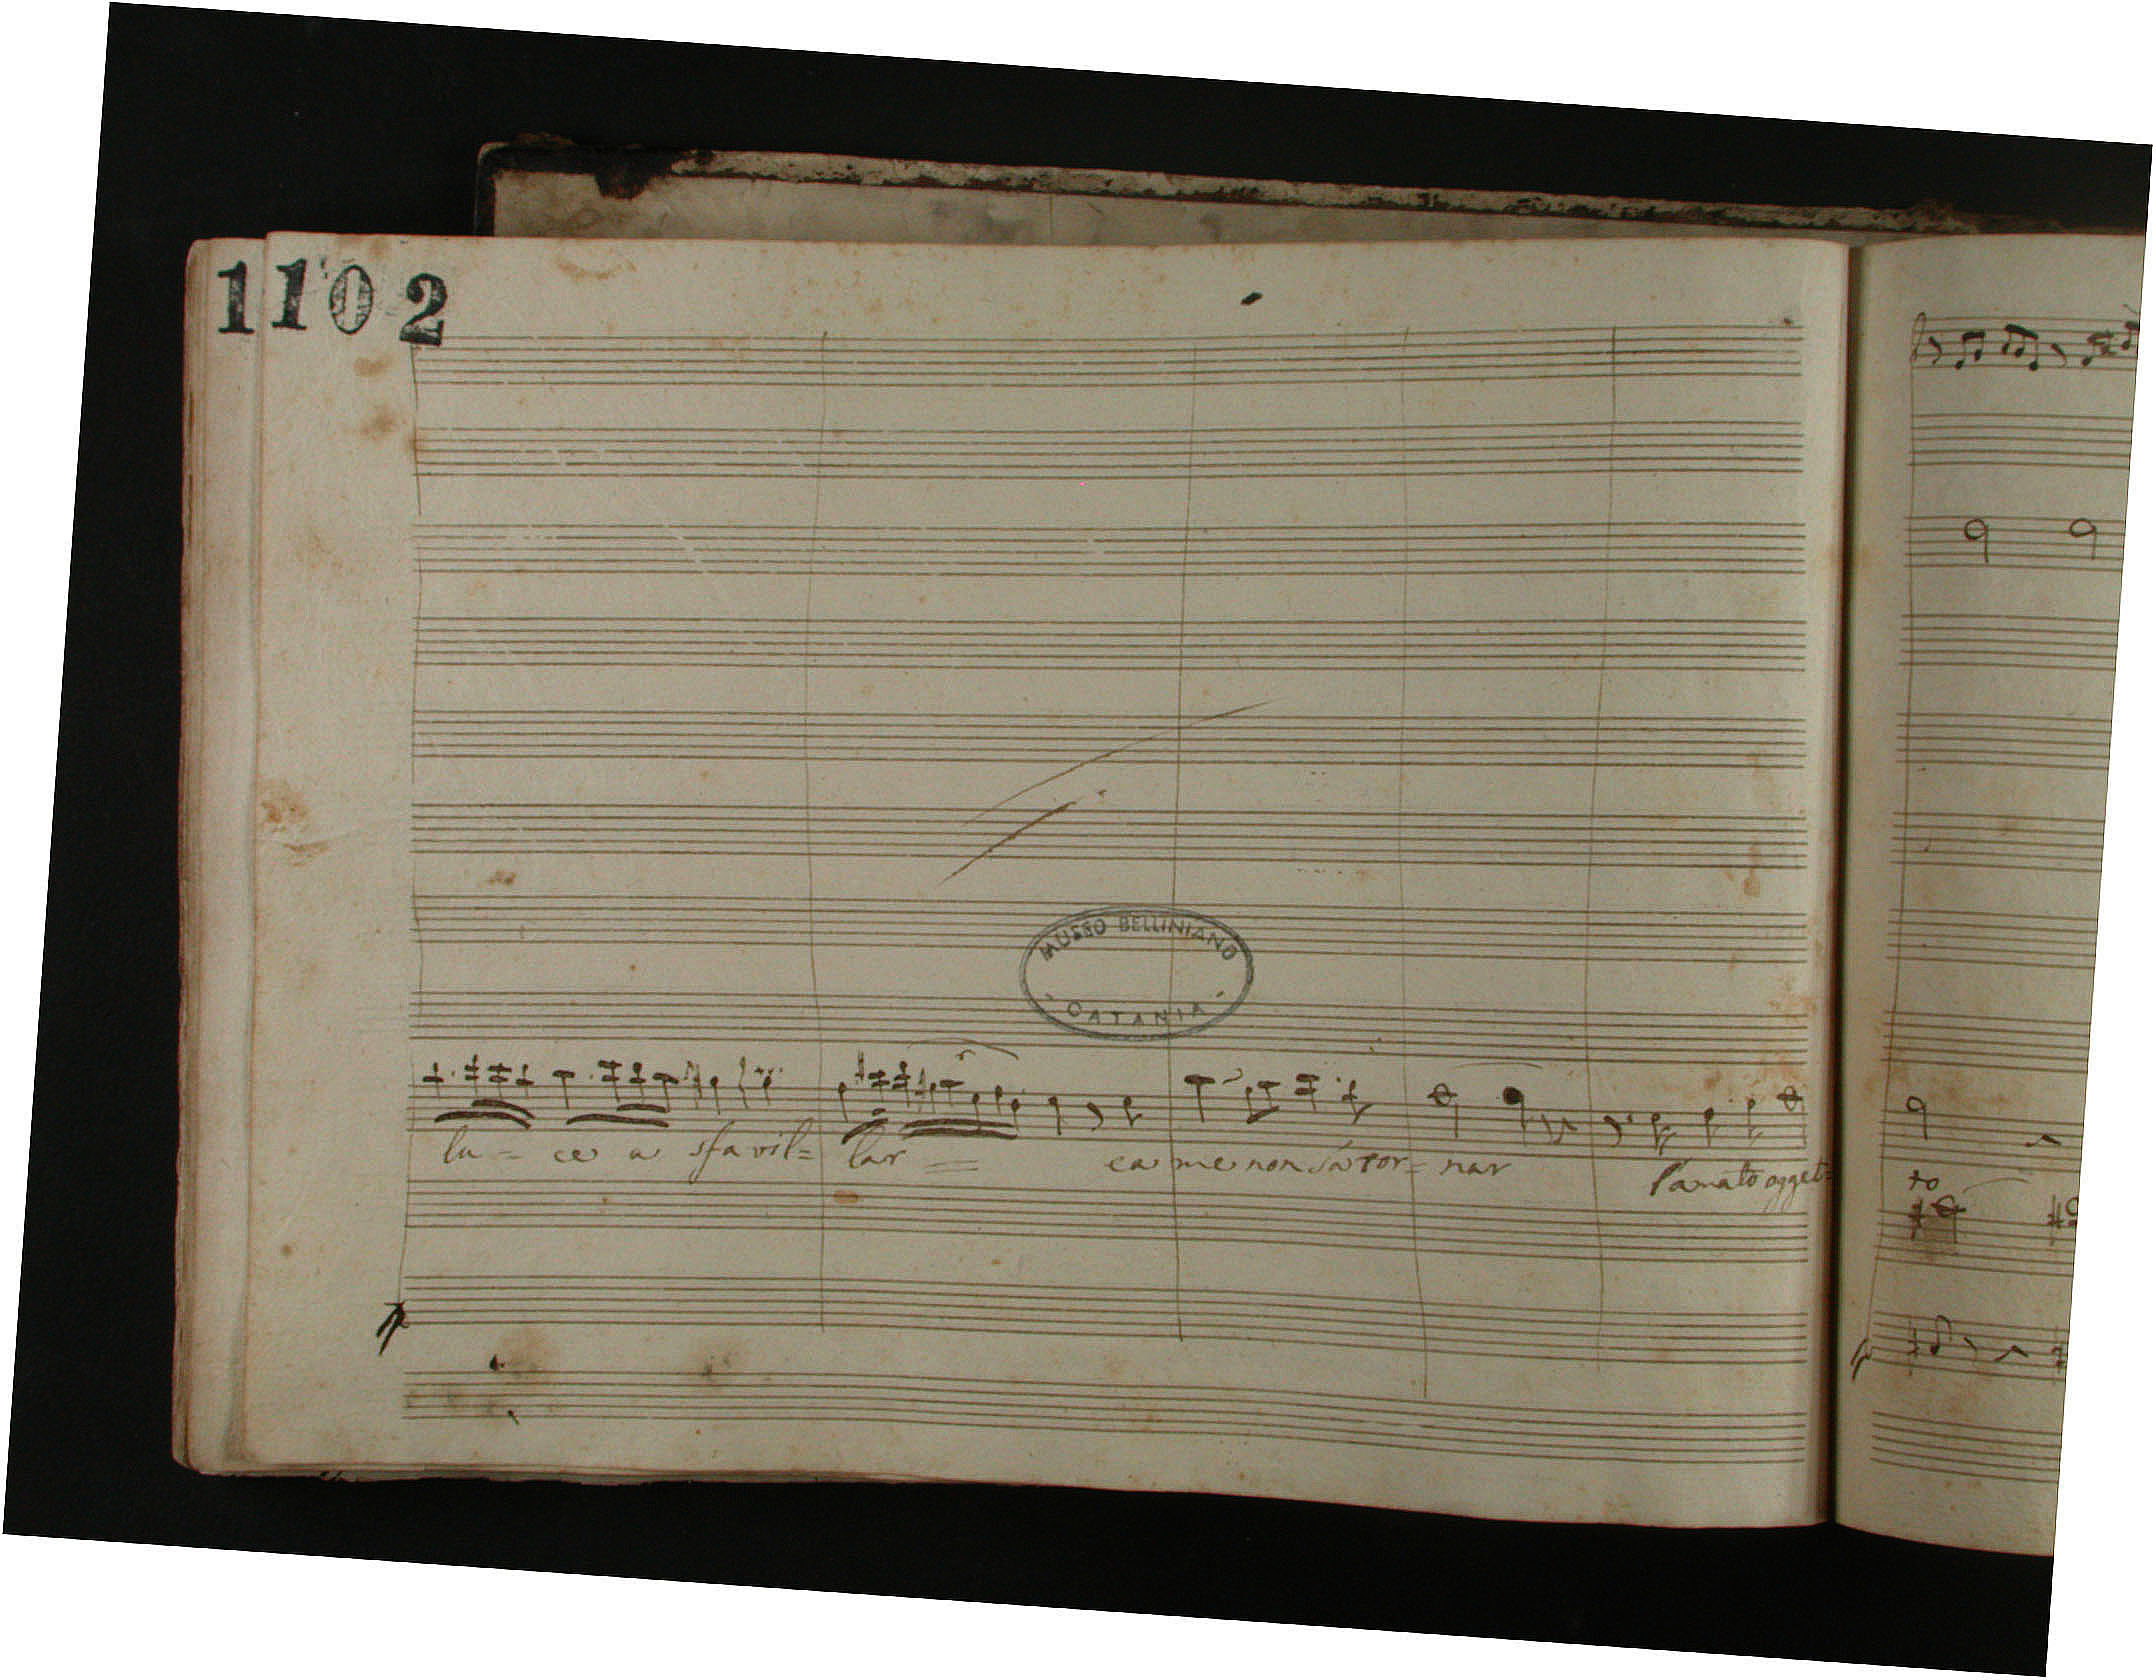 1102
MUSEO BELLINIANO
CATANIA
lu - ce a sfavil= lar = e a me non sa tor= nar l'amato ogget=
to